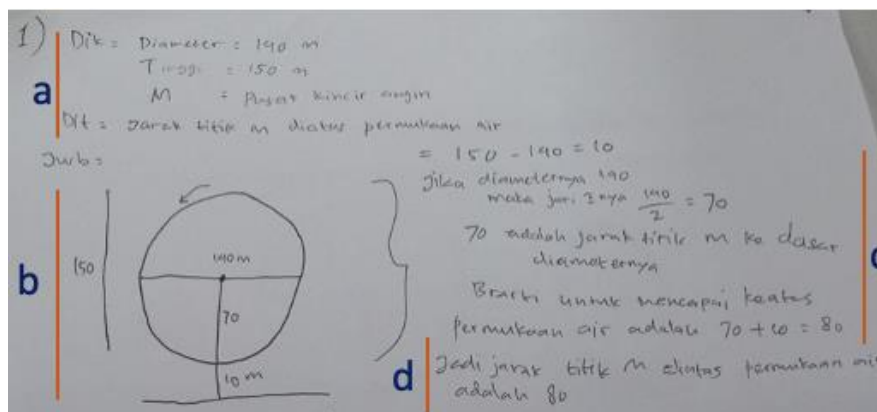 1)
a
Dik = Diameter = 140 m
Tinggi = 150 m
M = Pusat kincir angin
Dit = Jarak titik m diatas permukaan air
Jwb =
b
150
140 m
70
10 m
= 150 - 140 = 10
Jika diameternya 140
maka jari2nya 140/2 = 70
70 adalah jarak titik m ke dasar
diameternya
Brarti untuk mencapai keatas
permukaan air adalah 70 + 10 = 80
d
Jadi jarak titik M diatas permukaan air
adalah 80